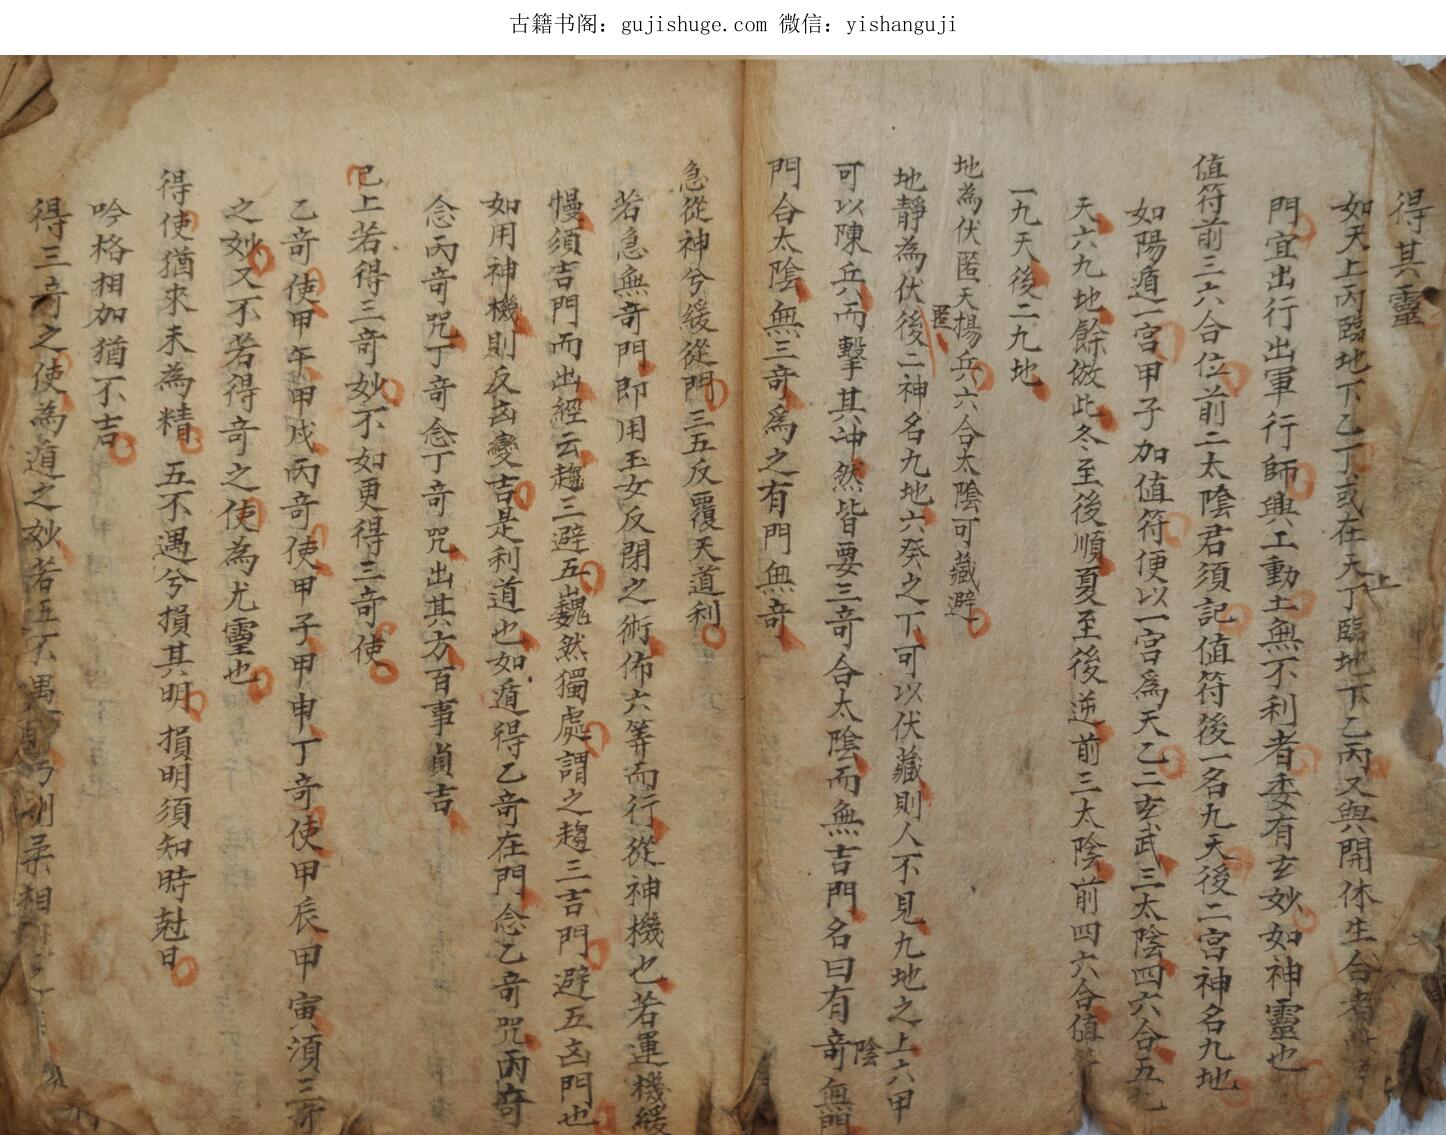 古籍书阁：gujishuge.com 微信：yishanguji
得其靈
如天上丙臨地下乙丁或在天上丁臨地下乙丙又與開休生合者
門宜出行出軍行師興工動土無不利者委有玄妙如神靈也
值符前三六合位前二太陰君須記值符後一名九天後二宮神名九地
如陽遁一宮甲子加值符便以一宮為天乙二玄武三太陰四六合五九
天六九地餘倣此冬至後順夏至後逆前三太陰前四六合值符
一九天後二九地
地為伏匿天揚兵六合太陰可藏避
地靜為伏匿後二神名九地六癸之下可以伏藏則人不見九地之上六甲
可以陳兵而擊其冲然皆要三奇合太陰而無吉門名曰有奇陰無門
門合太陰無三奇為之有門無奇
急從神兮緩從門三五反覆天道利
若急無奇門即用玉女反閉之術佈六等而行從神機也若運機緩
慢須吉門而出經云趨三避五巍然獨處謂之趨三吉門避五凶門也
如用神機則反凶變吉是利道也如遁得乙奇在門念乙奇咒丙奇
念丙奇咒丁奇念丁奇咒出其方百事貞吉
已上若得三奇妙不如更得三奇使
乙奇使甲午甲戌丙奇使甲子甲申丁奇使甲辰甲寅須三奇
之妙又不若得奇之使為尤靈也
得使猶來未為精五不遇兮損其明損明須知時尅日
吟格相加猶不吉
得三奇之使為遁之妙若五不遇剛柔相